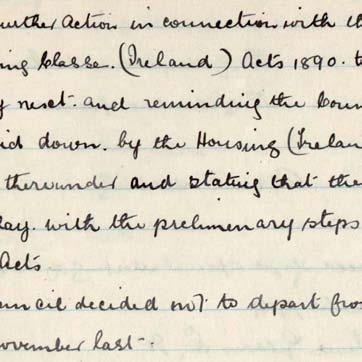 urther action in connection with th
ing Classe. (Ireland) Acts 1890. t
y next. and reminding the Coun
id down. by the Housing (Irelan
thereunder and stating that the
lay. with the prelimenary steps
Acts
uncil decided not to depart fro
ovember last.